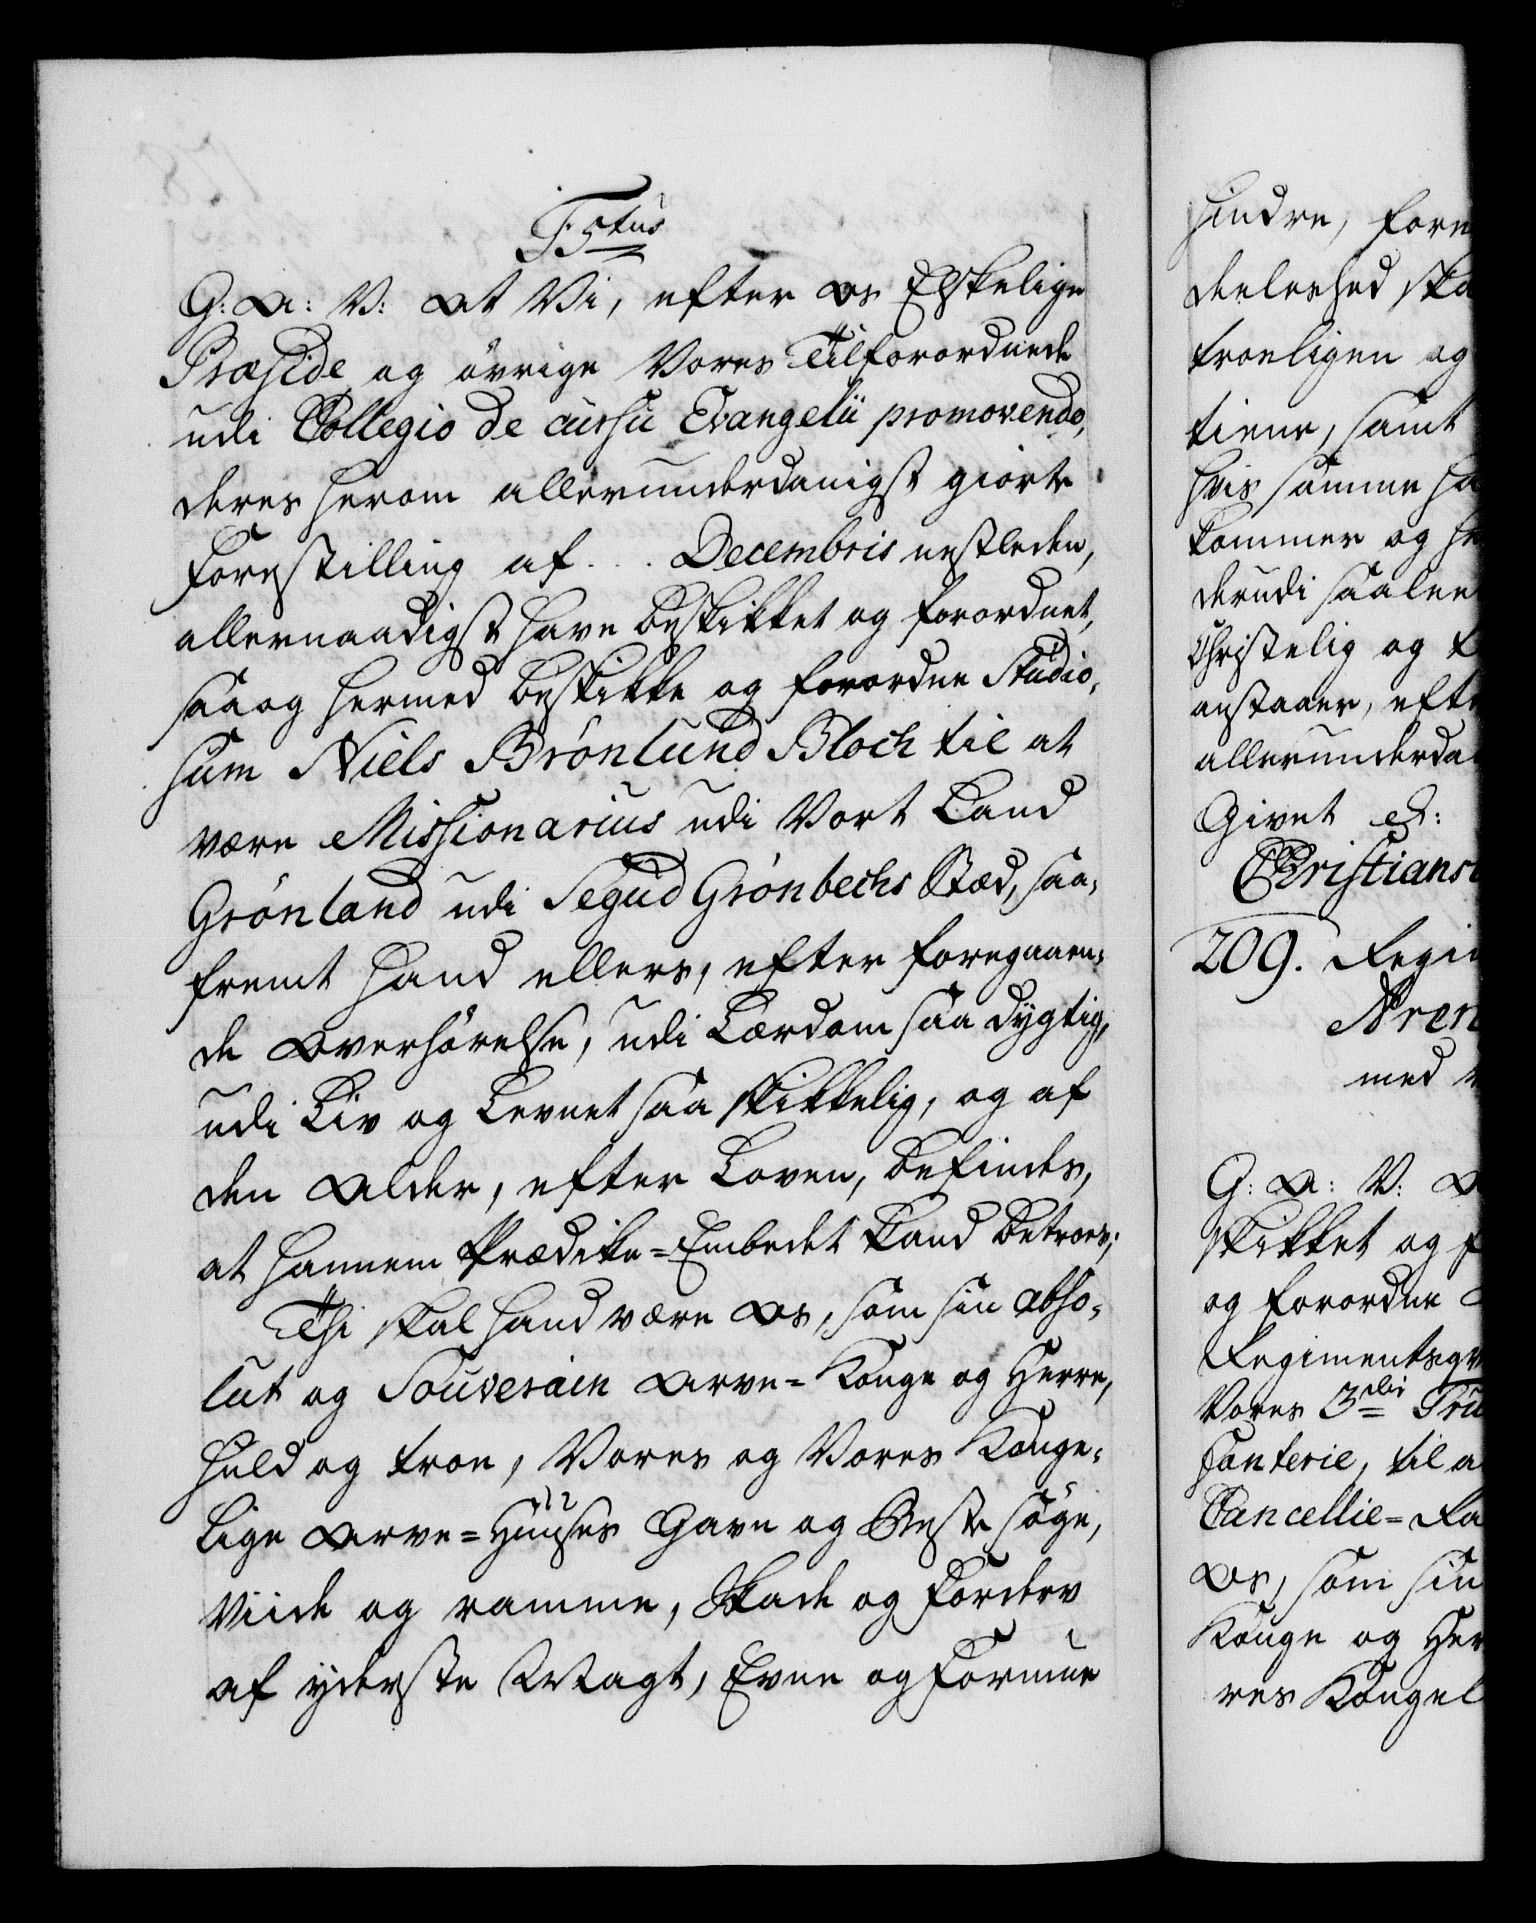 T: 5tus
G: A: V: At Vi, efter Os Elskelige
Præside og övrige Vores Tilforordnede
udi Collegio de cursu Evangelii promovendo,
deres herom allerunderdanigst giorte
Forestilling af . . . Decembris nestleden,
allernaadigst have beskikket og forordnet,
saa og hermed beskikke og forordne Studio-
sum Niels Brönlund Bloch til at
være Missionarius udi Vort Land
Grönland udi Segud Grönbechs Stæd, saa-
fremt Hand ellers, efter foregaaen-
de Overhörelse, udi Lærdom saa dygtig,
udi Liv og Levnet saa skikkelig, og af
den Alder, efter Loven, befindes,
at hannem Prædike-Embedet kand betroes;
Thi skal Hand være Os, som sin abso-
lut og Souverain Arve-Konge og Herre,
huld og troe, Vores og Vores Konge-
lige Arve-Huuses Gavn og Beste söge,
Viide og ramme, Skade og Forderv
af yderste Magt, Evne og Formue
hindre, fore
deeleshed ska
troeligen og
tiene, samt
hvis samme ha
kommer og he
derudi saalee
Christelig og
anstaaer, efte
allerunderda
Givet etc:
Christians
209. Regi
Aren
med
G: A: V: A
skikket og f
og forordne
Regimentsqv
Vores 3die Tru
fanterie, til a
Cancellie-Ra
Os, som sin
Konge og Her
res Kongel